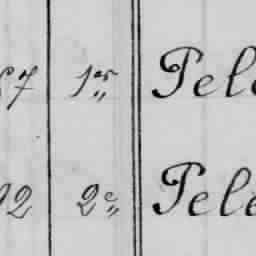 57 1er Pele
92 2e Pele